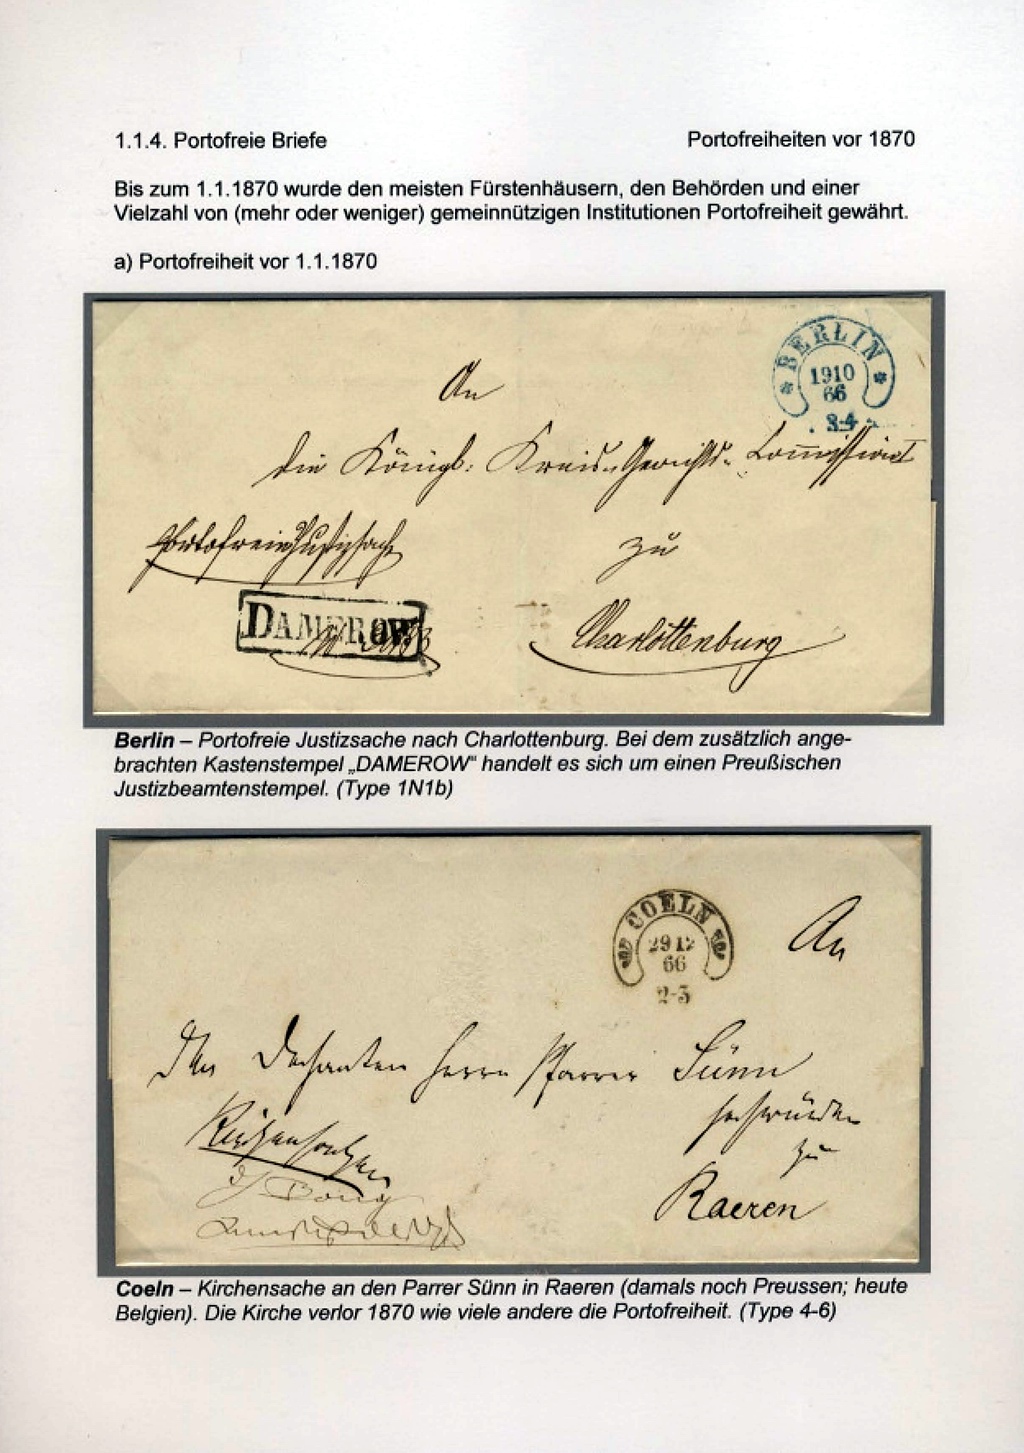 1.1.4. Portofreie Briefe
Portofreiheiten vor 1870
Bis zum 1.1.1870 wurde den meisten Fürstenhäusern, den Behörden und einer
Vielzahl von (mehr oder weniger) gemeinnützigen Institutionen Portofreiheit gewährt.
a) Portofreiheit vor 1.1.1870
BERLIN
1910
66
3-4
An
die Königl: Kreis-Gerichts-Commission
Portofreie Justizsache
zu
DAMEROW
Charlottenburg
Berlin – Portofreie Justizsache nach Charlottenburg. Bei dem zusätzlich ange-
brachten Kastenstempel „DAMEROW" handelt es sich um einen Preußischen
Justizbeamtenstempel. (Type 1N1b)
COELN
29 12
66
2-3
An
Den Dechanten Herrn Pfarrer Sünn
Hochwürden
Kirchensachen
zu
Raeren
Coeln – Kirchensache an den Parrer Sünn in Raeren (damals noch Preussen; heute
Belgien). Die Kirche verlor 1870 wie viele andere die Portofreiheit. (Type 4-6)